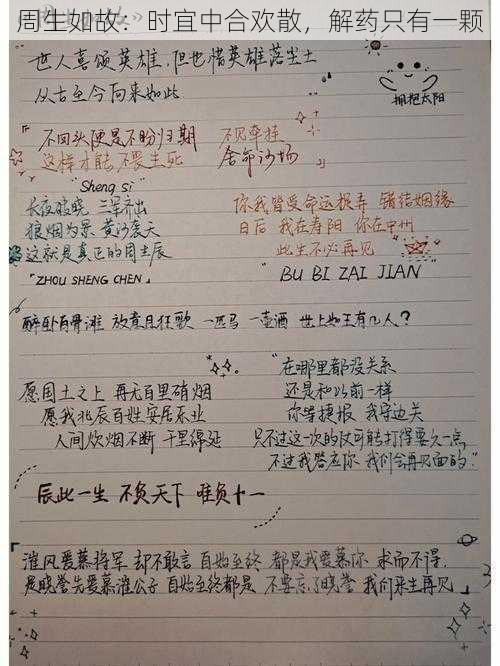 周生如故：时宜中合欢散，解药只有一颗
世人喜颂英雄，但也惜英雄落尘土
从古至今向来如此
拥抱太阳
不回头便是不盼归期
这样才能不畏生死
不见牵挂
舍命沙场
"Sheng si"
长夜破晓 三军齐出
狼烟为景 黄沙袭天
这就是真正的周生辰
"ZHOU SHENG CHEN"
你我皆受命运摆弄 错结姻缘
日后 我在寿阳 你在中州
此生不必再见
"BU BI ZAI JIAN"
醉卧白骨滩 放意且狂歌 一匹马 一壶酒 世上如王有几人？
愿国土之上 再无百里硝烟
愿我北辰百姓安居乐业
人间炊烟不断 千里绵延
"在哪里都没关系
还是和以前一样
你等捷报 我守边关
只不过这一次的仗可能打得要久一点
不过我答应你 我们会再见面的"
辰此一生 不负天下 唯负十一
漼风爱慕将军 却不敢言 自始至终 都是我爱慕你 求而不得，
是晓誉先爱慕漼公子 自始至终都是 不要忘了晓誉 我们来生再见